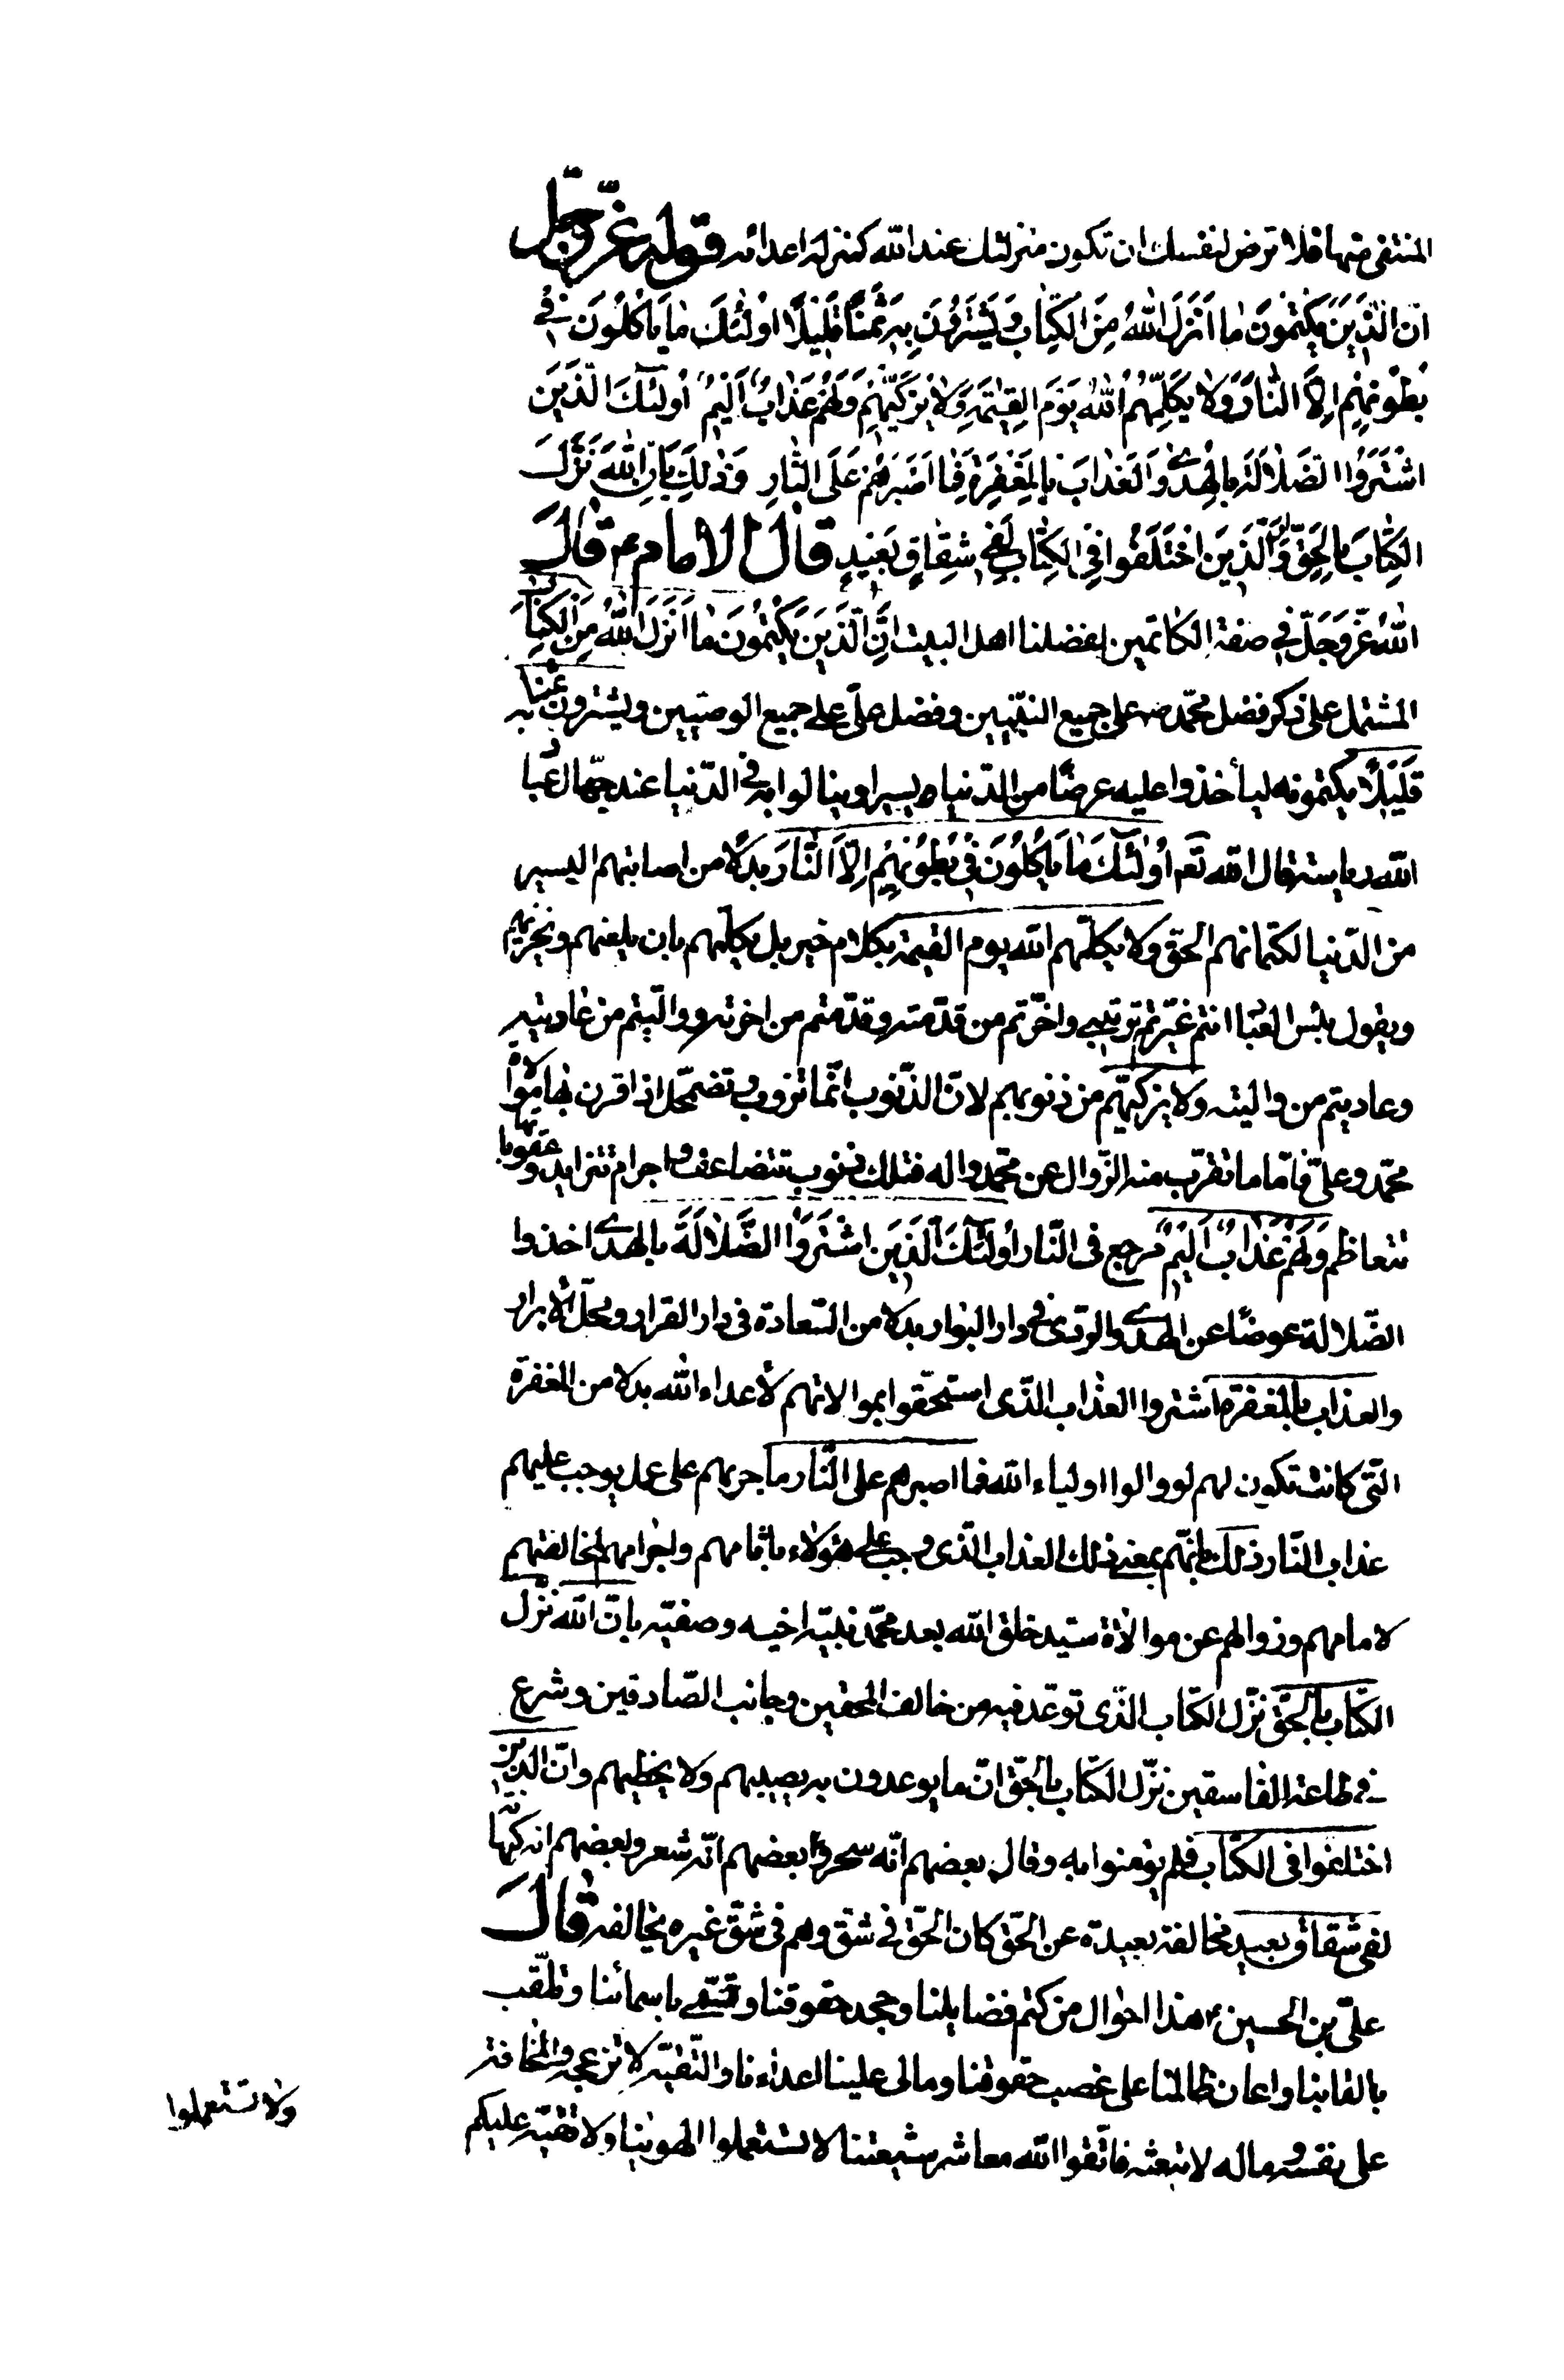 المنتفى منها فلا ترض لنفسك ان تكون منزلتك عند الله كمنزلة اعدائه قوله عزّ وجلّ
انّ الَّذِينَ يَكْتُمُونَ مٰا اَنْزَلَ اللّٰهُ مِنَ الْكِتٰابِ وَيَشْتَرُونَ بِهِ ثَمَنًا قَلِيلًا اُولٰئِكَ مٰا يَأكُلُونَ فِي
بُطُونِهِمْ اِلَّا النّٰارَ وَلٰا يُكَلِّمُهُمُ اللّٰهُ يَوْمَ الْقِيٰمَةِ وَلٰا يُزَكِّيهِمْ وَلَهُمْ عَذٰابٌ اَلِيمٌ اُولٰئِكَ الَّذِينَ
اشْتَرَوُا الضَّلٰالَةَ بِالْهُدىٰ وَالْعَذٰابَ بِالْمَغْفِرَةِ فَمٰا اَصْبَرَهُمْ عَلَى النّٰارِ وَذٰلِكَ بِاَنَّ اللّٰهَ نَزَّلَ
الْكِتٰابَ بِالْحَقِّ وَاِنَّ الَّذِينَ اخْتَلَفُوا فِي الْكِتٰابِ لَفِي شِقٰاقٍ بَعِيدٍ قال الامام ع قٰالَ
اللّٰهُ عَزَّ وَجَلَّ فِي صفة الكاتمين لفضلنا اهل البيت اِنَّ الَّذِينَ يَكْتُمُونَ مٰا اَنْزَلَ اللّٰهُ مِنَ الْكِتٰابِ
المشتمل على ذكر فضل محمّد ص على جميع النبيّين وفضل علىّ على جميع الوصيّين ويشترون به ثمنا
قَلِيلًا يكتمونه ليأخذوا عليه عرضًا من الدّنيا يسيرا وينالوا به في الدّنيا عند جهّال عبا
الله رياسته قال الله تعه اُولٰئِكَ مٰا يَأكُلُونَ فِي بُطُونِهِمْ اِلَّا النّٰارَ بدلا من اصابتهم اليسير
من الدّنيا لكتمانهم الحقّ ولا يكلّمهم الله يوم القيمة بكلام خير بل يكلّمهم بان يلعنهم ويخزيهم
ويقول بئس العبٰا انتم غيّرتم ترتيبي واخّرتم من قدّمته وقدّمتم من اخرته وواليتم من عاديته
وعاديتم من واليته ولا يزكيهم من ذنوبهم لانّ الذّنوب انّما تذوب وتضمحل اذا اقرن بها موالاة
محمّد وعلىّ فامّا ما تقرّب منه الزّوال عن محمّد واله فتلك ذنوب تتضاعف واجرام تتزايد وعقوباتها
تتعاظم وَلَهُمْ عَذَابٌ اَلِيمٌ مرجع فى النّار اُولٰئِكَ الَّذِينَ اشْتَرَوُا الضَّلٰالَةَ بالهدىٰ اخذوا
الضّلالة عوضًا عن الهدىٰ والردى فى دار البوار بدلا من السّعادة فى دار القرار ومحلّ الابرار
والعذاب بالمغفرة اشتروا العذاب الذّى استحّقوا بموالاتهم لأعداء الله بدلا من المغفرة
التّى كانت تكون لهم لو والوا اولياء الله فما اصبرهم على النّار ما جريهم على عمل يوجب عليهم
عذاب النّار ذلك بانّهم يعنى ذلك العذاب الذّى وجب على هؤلاء باثامهم واجرامهم لمخالفتهم
لامامهم وزوالهم عن موالاة سيّد خلق الله بعد محمّد نبيّه اخيه وصفيّه بانّ الله نزّل
الكتاب بالحقّ نزّل الكتاب الذّى توعّد فيه من خالف المحقين وجانب الصّادقين وشرع
فى طاعة الفاسقين نزّل الكتاب بالحقّ انّ ما يوعدون به يصيبهم ولا يخطيهم وانّ الذّين
اختلفوا فى الكتاب فلم يؤمنوا به وقال بعضهم انّه سحر وبعضهم انّه شعر وبعضهم انه كهانة
لفى شقاق بعيد مخالفة بعيدة عن الحقّ كان الحقّ فى شقّ وهم فى شقّ غيره يخالفه قٰالَ
علىّ بن الحسين ع هذا احوال من كتم فضايلنا وجحد حقوقنا وتسمّى باسمائنا وتلّقب
بالقابنا واعان ظالمنا على غصب حقوقنا ومالى علينا اعداءنا والتّقيّة لا تزعجه والمخافة
على نفسه وماله لا تبعثه فاتّقوا الله معاشر شيعتنا لا تستعملوا الهوينا ولا تقيّة عليكم
ولا تستعملوا